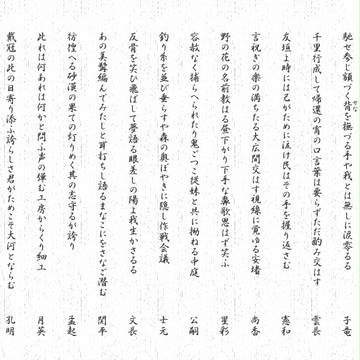 馳せ参じ額づく背を撫づる手や我とは無しに涙零るる 子竜
千里行成して帰還の宵の口言葉は要らずただ酌み交はす 雲長
友垣よ時には己がために泣け民はその手を握り返さむ 憲和
言祝ぎの楽の満ちたる大広間交はす視線に寛ゆる安堵 尚香
野の花の名前教はる昼下がり下手な鼻歌思はず笑ふ 星彩
容赦なく捕らへられたり鬼ごつこ従妹と共に拗ねる中庭 公嗣
釣り糸を並び垂らすや森の奥ぼやきに隠し作戦会議 士元
反骨を笑ひ飛ばして夢語る眼差しの陽よ我生かさるる 文長
あの美髯編んでみたしと耳打ちし語るまなこにをさなご潜む 関平
彷徨へる砂漠の果ての灯りめく其の志守るが誇り 孟起
此れは何あれは何かと問ふ声の弾む工房からくり細工 月英
戴冠の此の日寄り添ふ誇らしさ君がためこそ大河とならむ 孔明